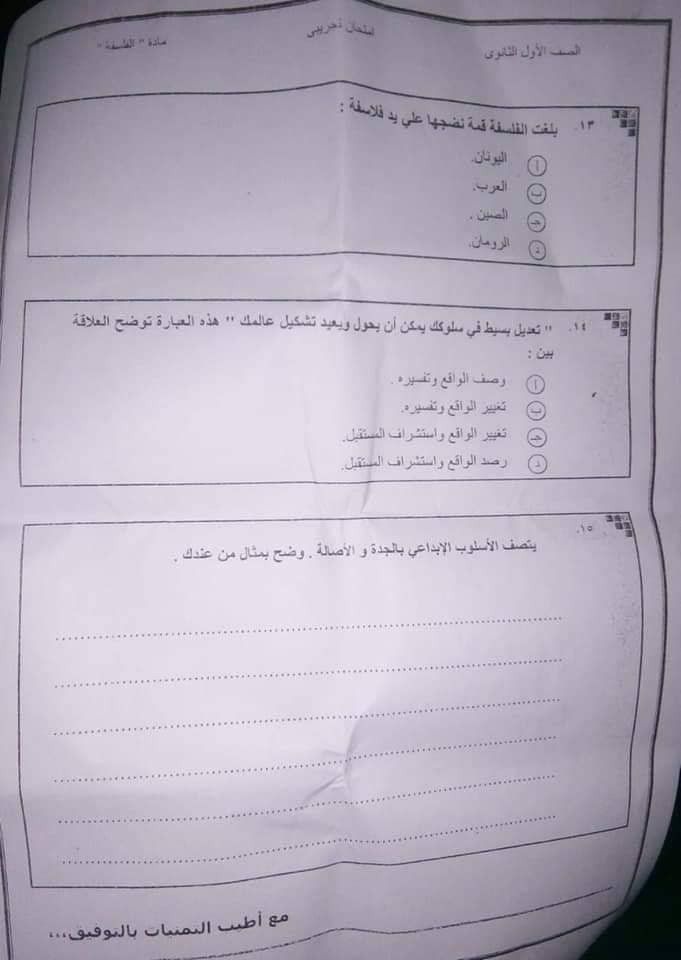 الصف الأول الثانوى
امتحان تجريبى
مادة " الفلسفة "
١٣. بلغت الفلسفة قمة نضجها علي يد فلاسفة :
أ اليونان.
ب العرب.
جـ الصين .
د الرومان.
١٤. " تعديل بسيط في سلوكك يمكن أن يحول ويعيد تشكيل عالمك " هذه العبارة توضح العلاقة
بين :
أ وصف الواقع وتفسيره .
ب تغيير الواقع وتفسيره.
جـ تغيير الواقع واستشراف المستقبل.
د رصد الواقع واستشراف المستقبل.
١٥. يتصف الأسلوب الإبداعي بالجدة و الأصالة . وضح بمثال من عندك .
مع أطيب التمنيات بالتوفيق،،،